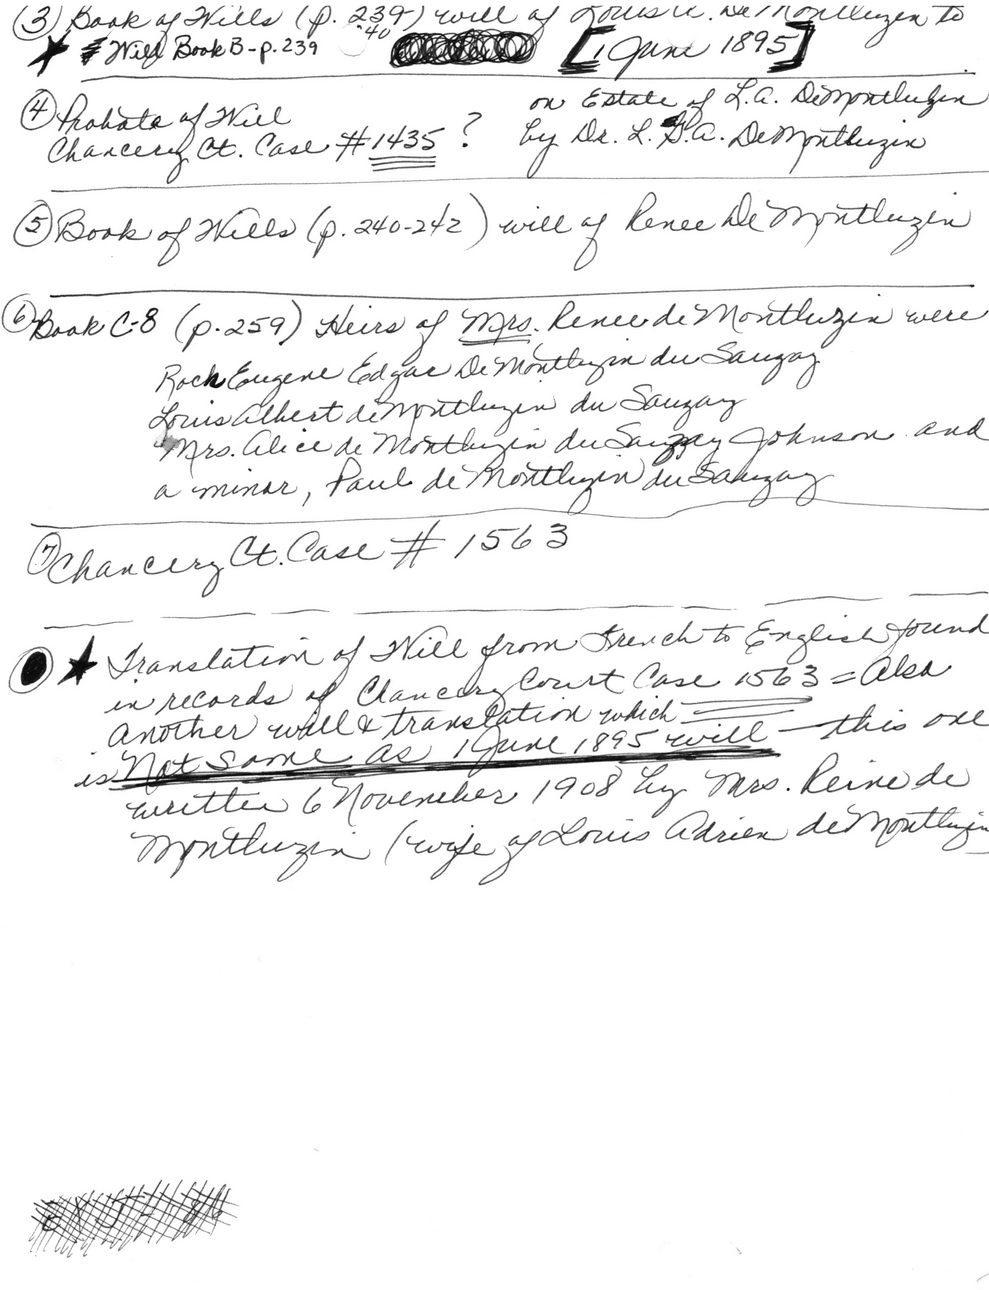 (3) Book of Wills (p. 239) will of Louis A. De Montluzin to
'40
★ Will Book B - p. 239 [1 June 1895]
(4) Probate of Will on Estate of L.A. DeMontluzin
Chancery Ct. Case #1435 ? by Dr. L. A. DeMontluzin
(5) Book of Wills (p. 240-242) will of Renee De Montluzin
(6) Book C-8 (p. 259) Heirs of Mrs. Renee de Montluzin were
Roch Eugene Edgar De Montluzin du Sauzay
Louis Albert de Montluzin du Sauzay
Mrs. Alice de Montluzin du Sauzay Johnson and
a minor, Paul de Montluzin du Sauzay
(7) Chancery Ct. Case # 1563
● ★ Translation of Will from French to English found
in records of Chancery Court Case 1563 = Also
another will & translation which
is Not Same as 1 June 1895 will - this one
written 6 November 1908 by Mrs. Reine de
Montluzin (wife of Louis Adrien de Montluzin